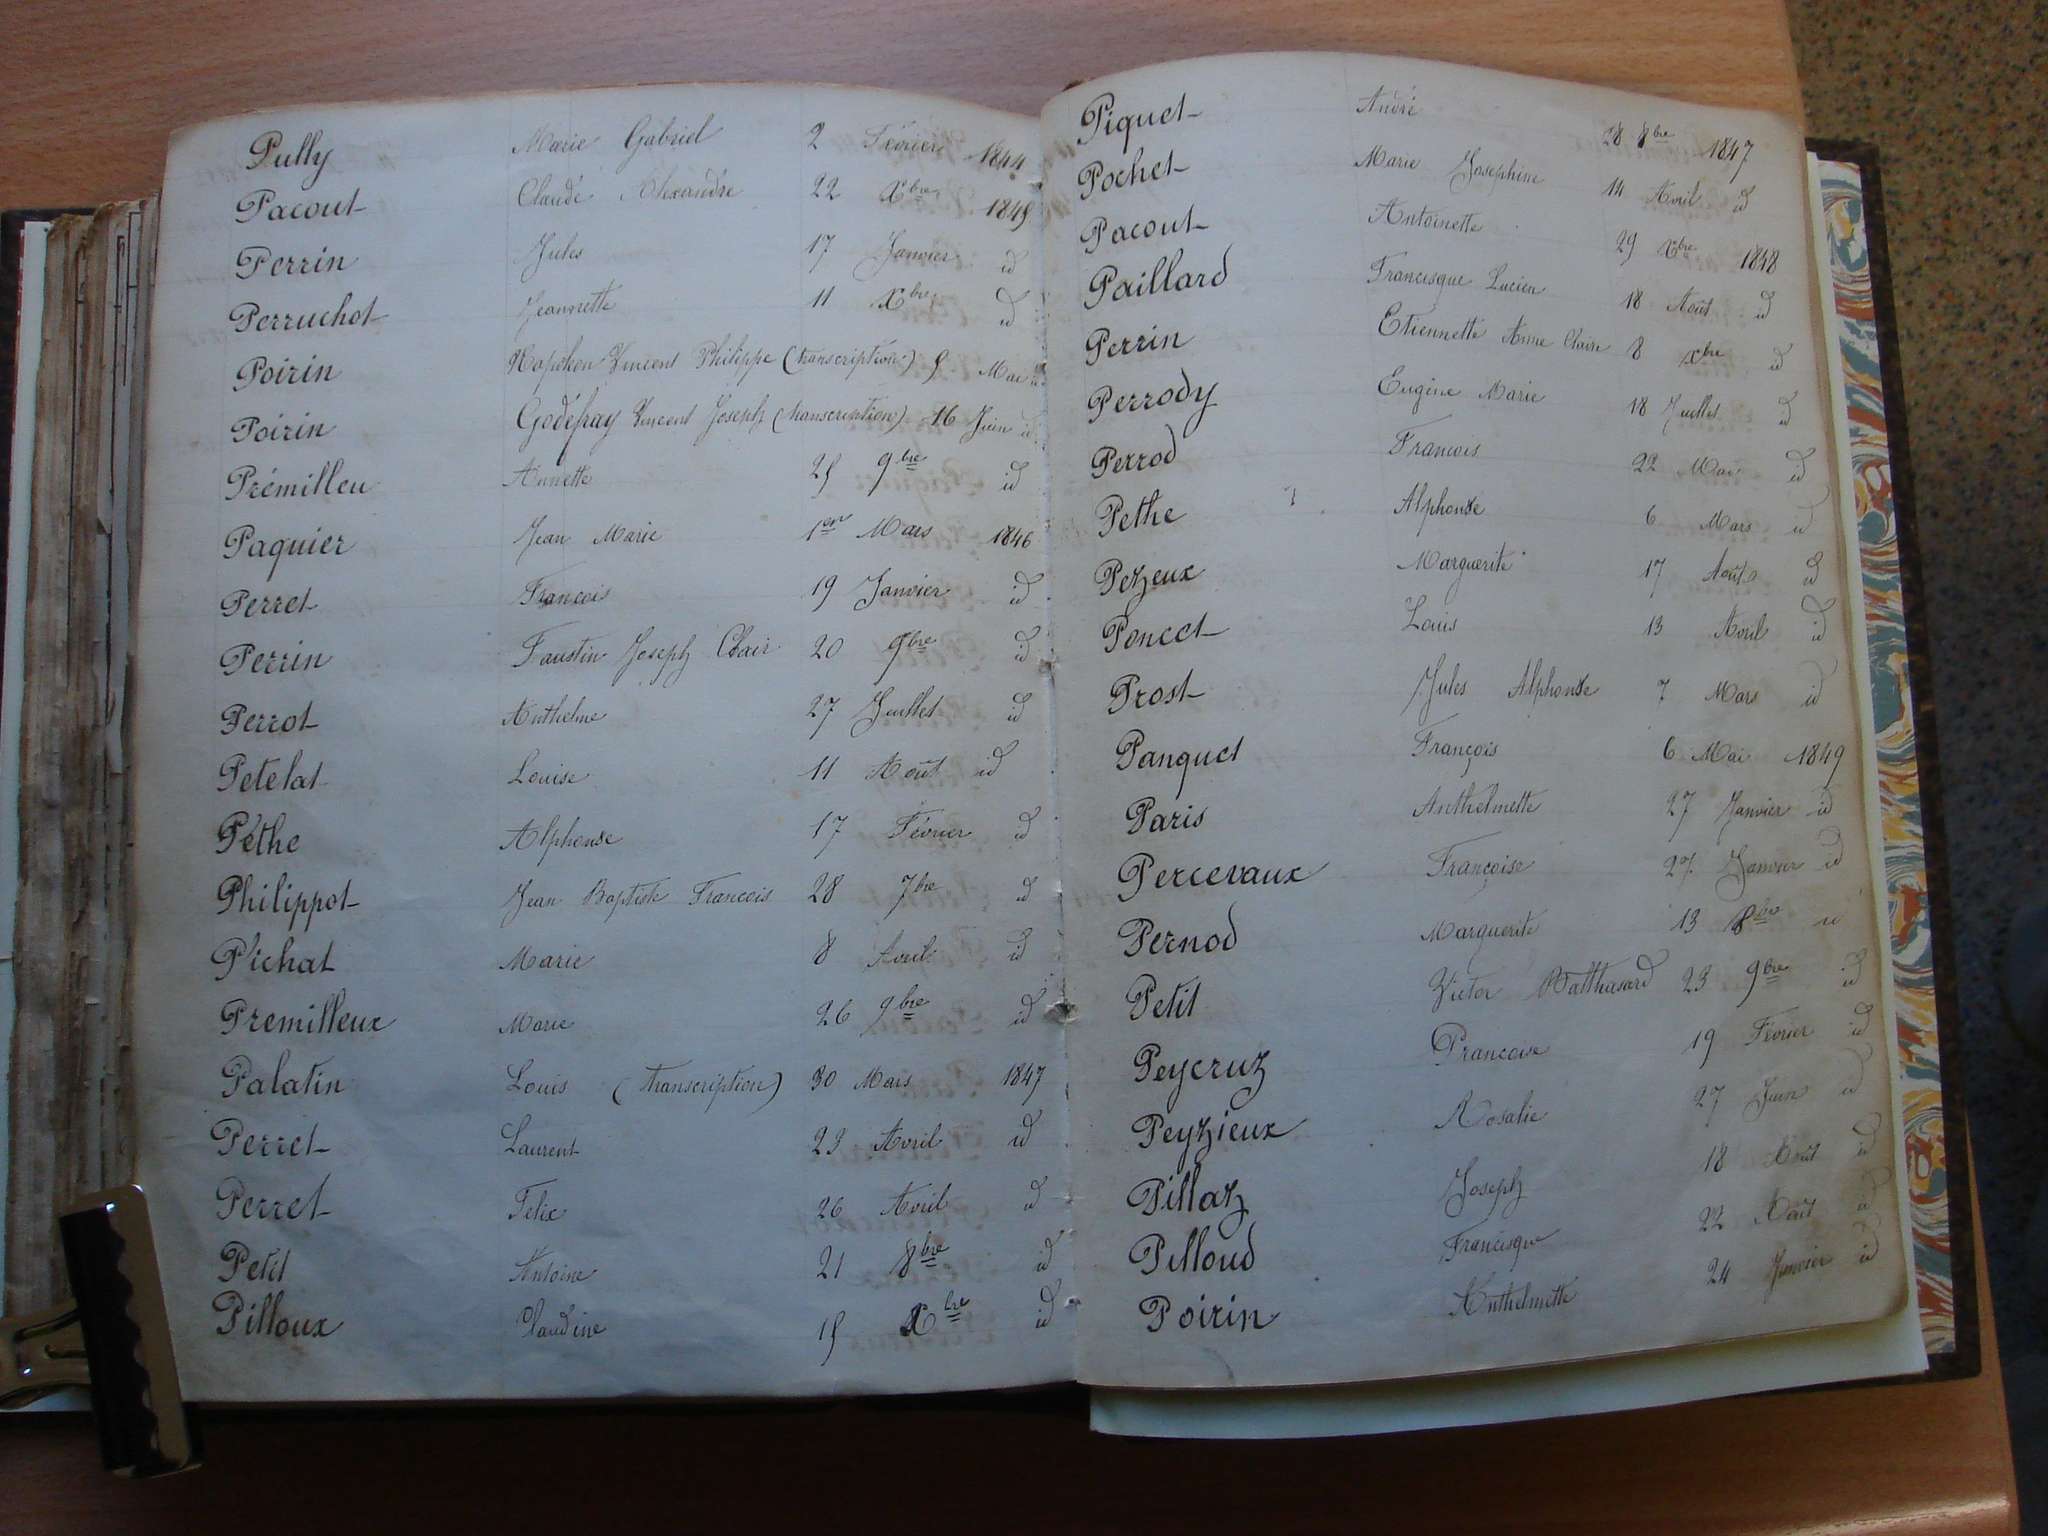 Pully Marie Gabriel 2 Février 1844
Pacout Claude Alexandre 22 Xbre 1845
Perrin Jules 17 Janvier id
Perruchot Jeannette 11 Xbre id
Poirin Napoléon Vincent Philippe (transcription) 5 Mai id
Poirin Godéfray Vincent Joseph (transcription) 16 Juin id
Prémilleu Annette 25 9bre id
Paquier Jean Marie 1er Mars 1846
Perret François 19 Janvier id
Perrin Faustin Joseph Clair 20 9bre id
Perrot Anthelme 27 Juillet id
Petelat Louise 11 Août id
Péthe Alphonse 17 Février id
Philippot Jean Baptiste Francois 28 7bre id
Pichat Marie 8 Avril id
Premilleux Marie 26 9bre id
Palatin Louis (transcription) 30 Mars 1847
Perret Laurent 23 Avril id
Perret Felix 26 Avril id
Petit Antoine 21 8bre id
Pilloux Claudine 15 Xbre id
Piquet André 28 8bre 1847
Pochet Marie Josephine 14 Avril id
Pacout Antoinette 29 Xbre 1848
Paillard Francisque Lucien 18 Août id
Perrin Etiennette Anne Claire 8 xbre id
Perrody Eugène Marie 18 Juillet id
Perrod Francois 22 Mai id
Pethe Alphonse 6 Mars id
Pezeux Marguerite 17 Août id
Poncet Louis 13 Avril id
Prost Jules Alphonse 7 Mars id
Panquet François 6 Mai 1849
Paris Anthelmette 27 Janvier id
Percevaux Françoise 27 Janvier id
Pernod Marguerite 13 8bre id
Petit Victor Balthasard 23 9bre id
Peycruz Francoise 19 Février id
Peyzieux Rosalie 27 Juin id
Pillaz Joseph 18 Août id
Pilloud Francisque 22 Août id
Poirin Anthelmette 24 Janvier id